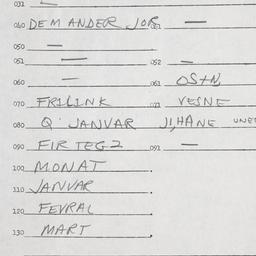 031 —
040 DEMANDER JOR 041 —
050 —
051 — 052 —
060 — 061 OSTN
070 FRILINK 071 VESNE
080 Q. JANVAR JI, HANE UNE
090 FIR TEG2 091 —
100 MONAT
110 JANVAR
120 FEVRAL
130 MART